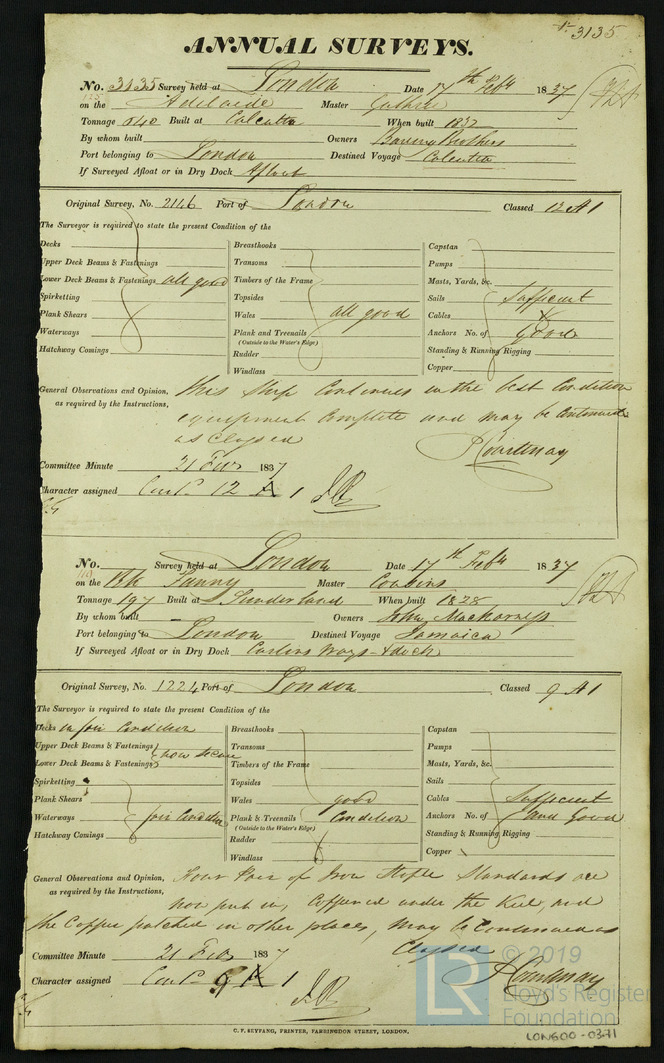 3135
ANNUAL SURVEYS.
No. 3135 Survey held at London Date 17th Feby 1837
on the Adelaide Master Guthrie
Tonnage 640 Built at Calcutta When built 1832
By whom built Owners Baring Brothers
Port belonging to London Destined Voyage Calcutta
If Surveyed Afloat or in Dry Dock Afloat
Original Survey, No. 2146 Port of London Classed 12 A 1
The Surveyor is required to state the present Condition of the
Decks
Upper Deck Beams & Fastenings
Lower Deck Beams & Fastenings all good
Spirketting
Plank Shears
Waterways
Hatchway Comings
Breasthooks
Transoms
Timbers of the Frame
Topsides
Wales all good
Plank and Treenails
(Outside to the Water's Edge)
Rudder
Windlass
Capstan
Pumps
Masts, Yards, &c.
Sails Sufficient
Cables &
Anchors No. of Good
Standing & Running Rigging
Copper
General Observations and Opinion, This Ship Continues in the best Condition
as required by the Instructions, equipment Complete and may be Continued
as Classed
P Courtenay
Committee Minute 21 Feby 1837
Character assigned Cont. 12 A 1
No. Survey held at London Date 17th Feby 1837
on the Bk Fanny Master Cousins
Tonnage 197 Built at Sunderland When built 1828
By whom built Owners John Mackarness
Port belonging to London Destined Voyage Jamaica
If Surveyed Afloat or in Dry Dock Carlins Ways & dock
Original Survey, No. 1224 Port of London Classed 9 A 1
The Surveyor is required to state the present Condition of the
Decks in fair Condition
Upper Deck Beams & Fastenings
Lower Deck Beams & Fastenings now secure
Spirketting
Plank Shears
Waterways fair Condition
Hatchway Comings
Breasthooks
Transoms
Timbers of the Frame
Topsides
Wales good
Plank & Treenails Condition
(Outside to the Water's Edge)
Rudder
Windlass
Capstan
Pumps
Masts, Yards, &c.
Sails
Cables Sufficient
Anchors No. of and good
Standing & Running Rigging
Copper
General Observations and Opinion, Four Pair of Iron Staple Standards are
as required by the Instructions, now put in, Coppered under the Keel, and
the Copper patched in other places, may be Continued as
Classed
P Courtenay
Committee Minute 21 Feby 1837
Character assigned Cont. 9 A 1
C. F. SEYFANG, PRINTER, FARRINGDON STREET, LONDON.
LR
© 2019
Lloyd's Register
Foundation
LON600-0371